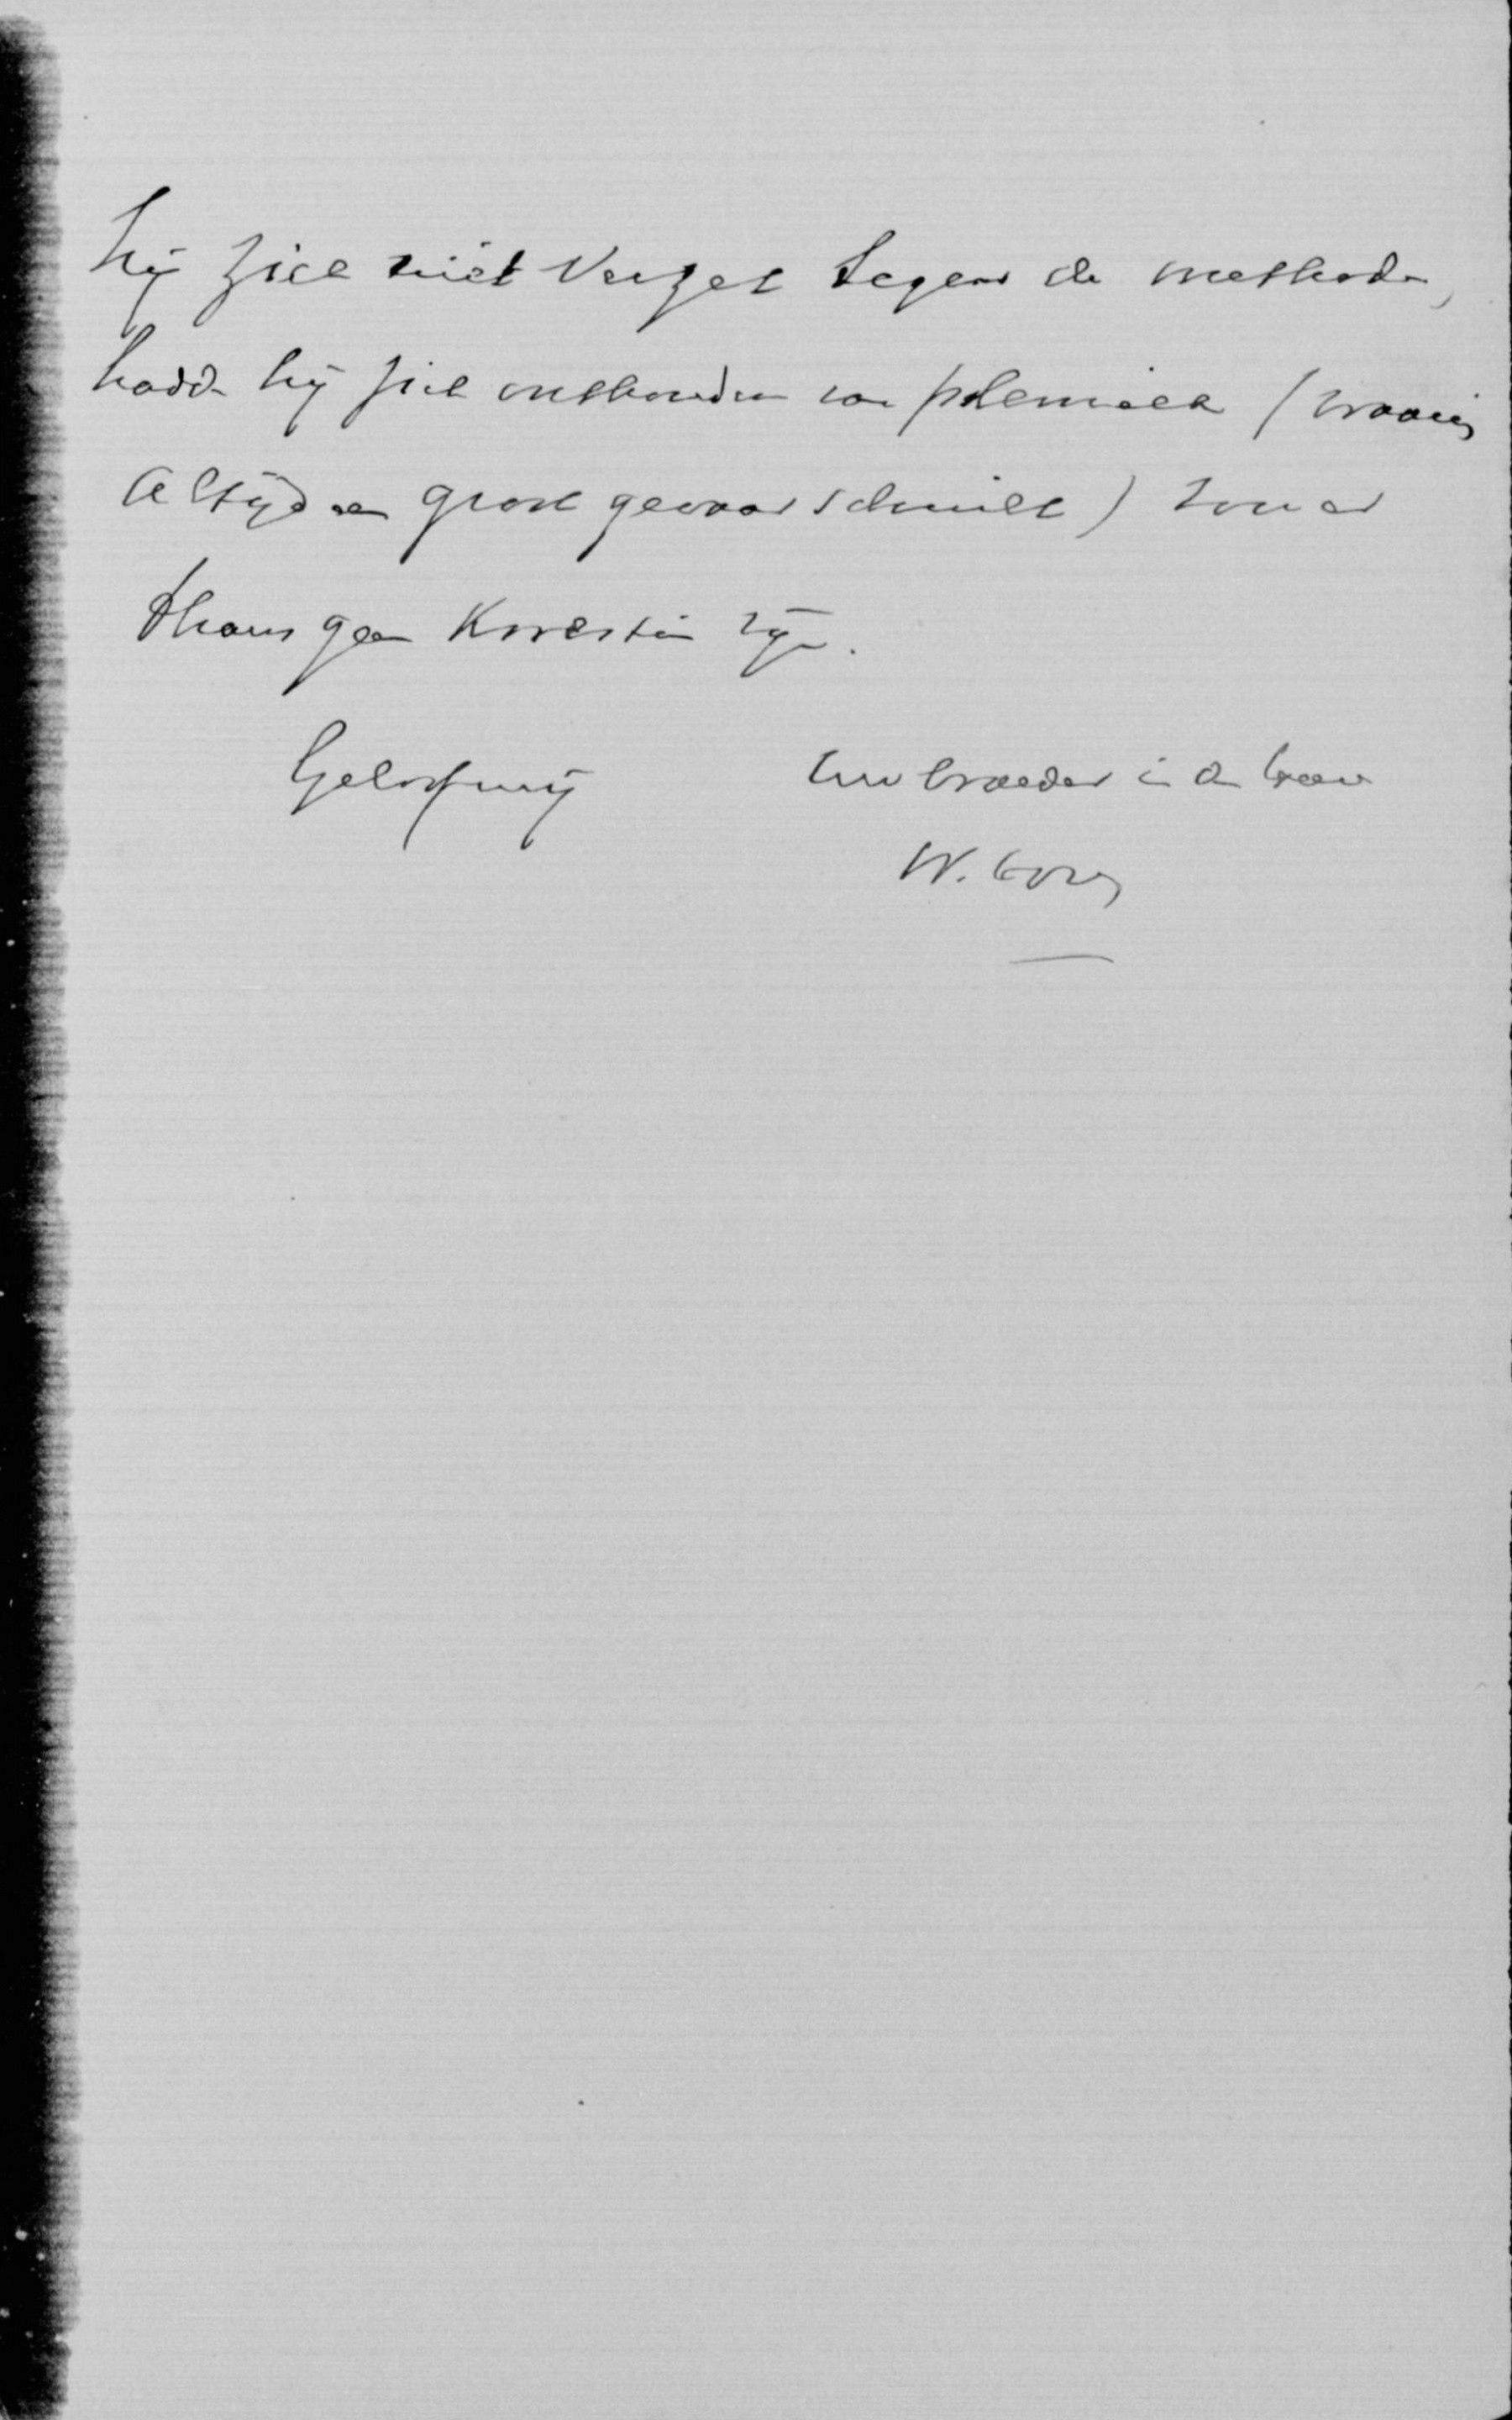 hij zich niet verzet tegen de methode,
hadde hij zich onthouden van polemiek (waarin
altijd een groot gevaar schuilt) zou er
thans geen kwestie zijn.
Geloof mij Uw broeder in den Heer
W.